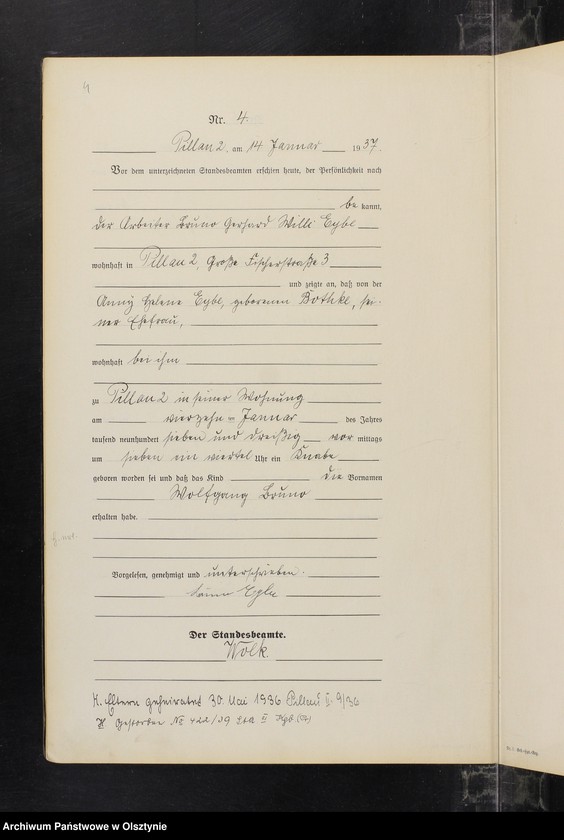 4
Nr. 4.
Pillau 2. am 14 Januar 1937.
Vor dem unterzeichneten Standesbeamten erschien heute, der Persönlichkeit nach
be kannt,
der Arbeiter Bruno Gerhard Willi Eybe
wohnhaft in Pillau 2, Große Fischerstraße 3
und zeigte an, daß von der
Anny Helene Eybe, geborenen Bothke, sei-
ner Ehefrau,
wohnhaft bei ihm
zu Pillau 2 in seiner Wohnung
am vierzehn = Januar des Jahres
tausend neunhundert sieben und dreißig vor mittags
um sieben ein viertel Uhr ein Knabe
geboren worden sei und daß das Kind die Vornamen
Wolfgang Bruno
erhalten habe.
Vorgelesen, genehmigt und unterschrieben.
Bruno
Der Standesbeamte.
Wolk
K. Eltern geheiratet 30. Mai 1936 Pillau II. 9/36
Gestorben № 422/39 StA II Kgb.
Archiwum Państwowe w Olsztynie